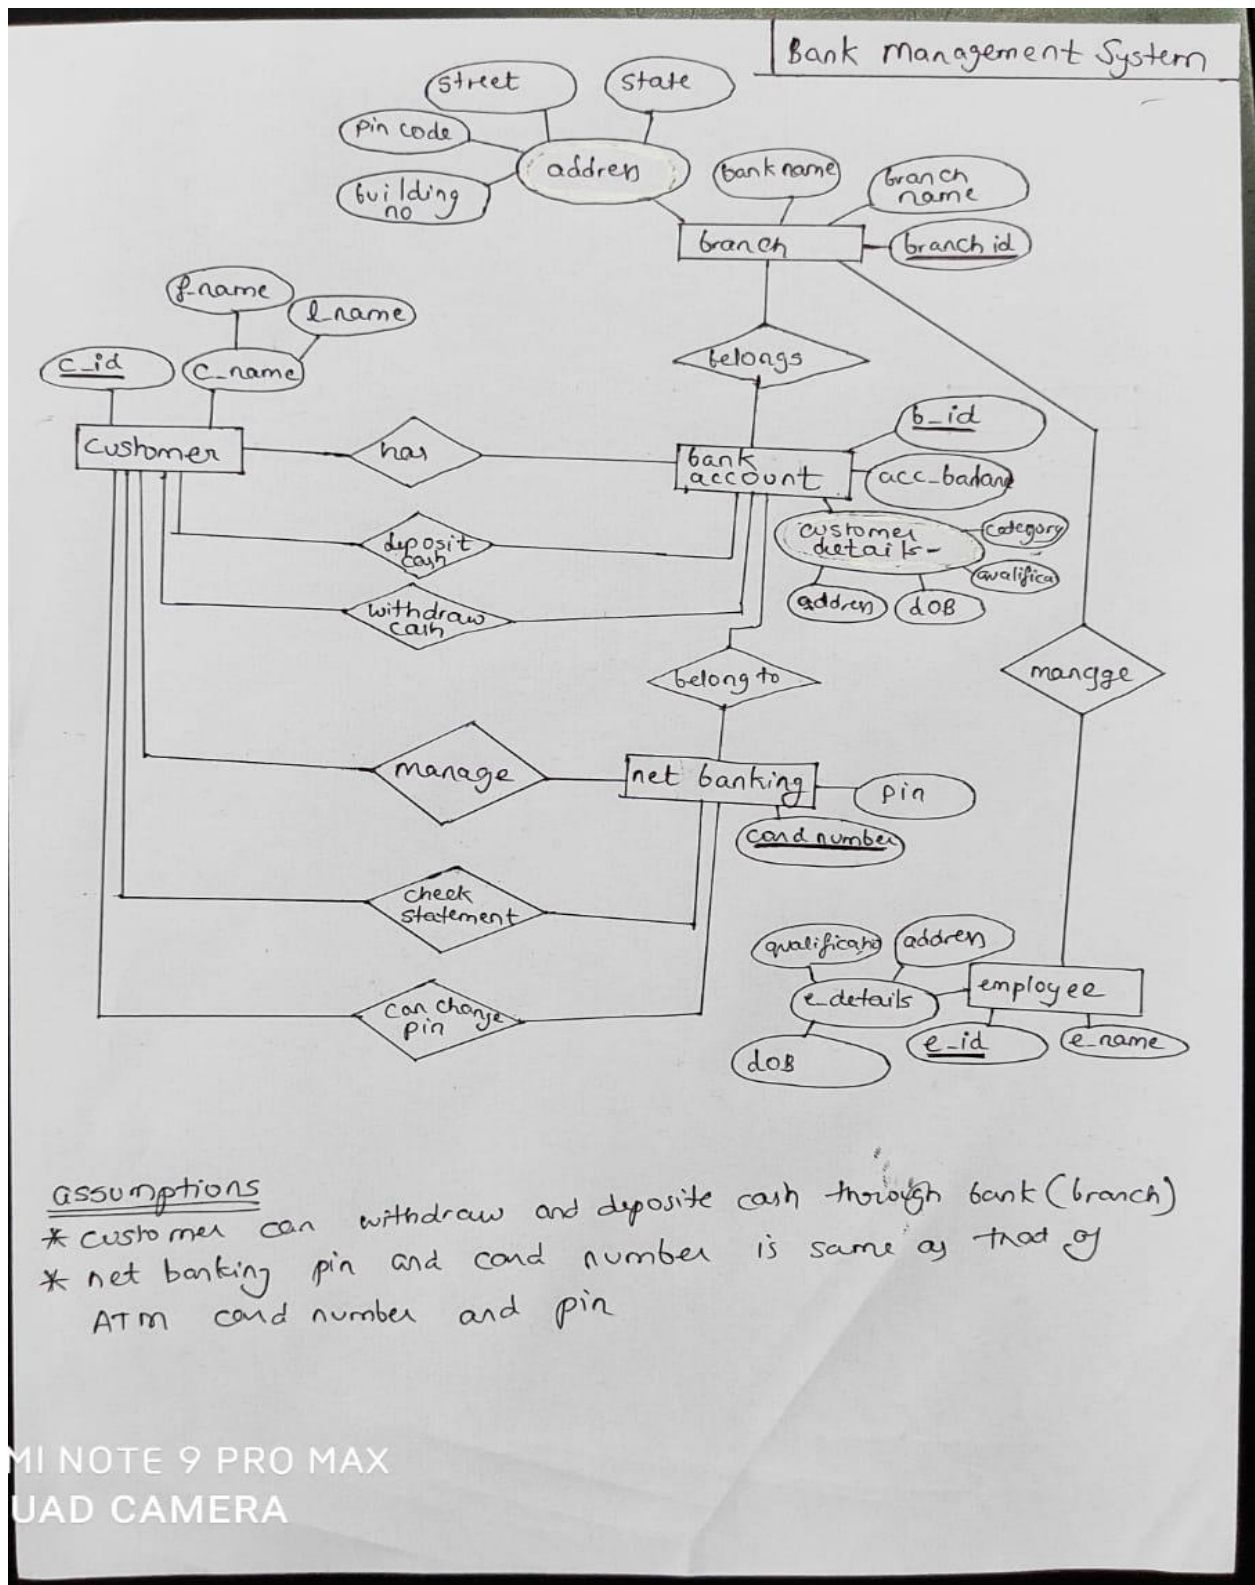 Bank Management System
street
state
pin code
building
no
address
bank name
branch
name
branch id
branch
f_name
l_name
c_id
c_name
belongs
customer
has
bank
account
b_id
acc_balanc
customer
details
category
qualifica
address
dOB
deposit
cash
withdraw
cash
belong to
manage
manage
net banking
pin
card number
check
statement
can change
pin
qualificatio
address
e_details
employee
dOB
e_id
e_name
assumptions
* customer can withdraw and deposite cash through bank (branch)
* net banking pin and card number is same as that of
ATM card number and pin
MI NOTE 9 PRO MAX
UAD CAMERA